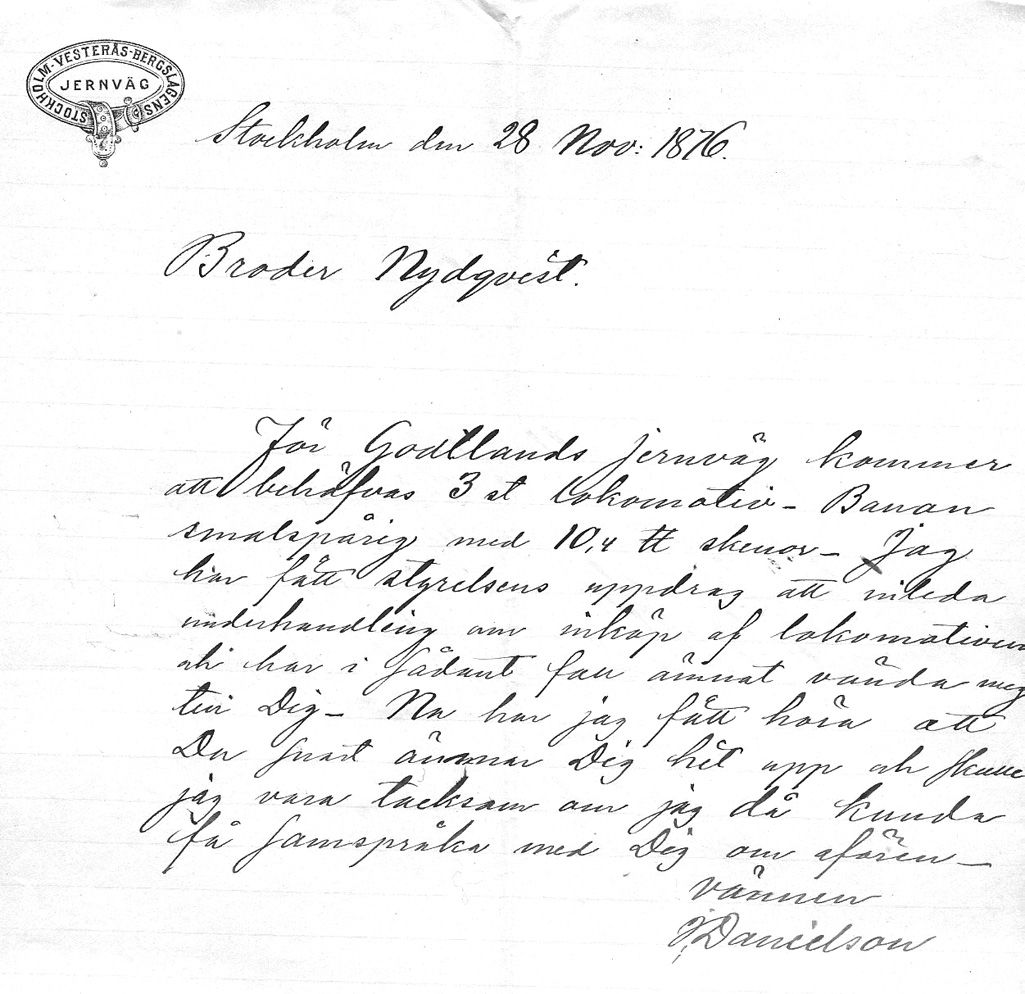 STOCKHOLM-VESTERÅS-BERGSLAGENS
JERNVÄG
Stockholm den 28 Nov: 1876.
Broder Nydqvist.
För Godtlands jernväg kommer
att behöfvas 3 st lokomotiv - Banan
smalspårig med 10,4 ℔ skenor - Jag
har fått styrelsens uppdrag att inleda
underhandling om inköp af lokomotiven
och har i sådant fall ämnat vända mig
till Dig - Nu har jag fått höra att
Du snart ämnar Dig hit upp och skulle
jag vara tacksam om jag då kunda
få samspråka med Dig om afären -
vännen
Danielson